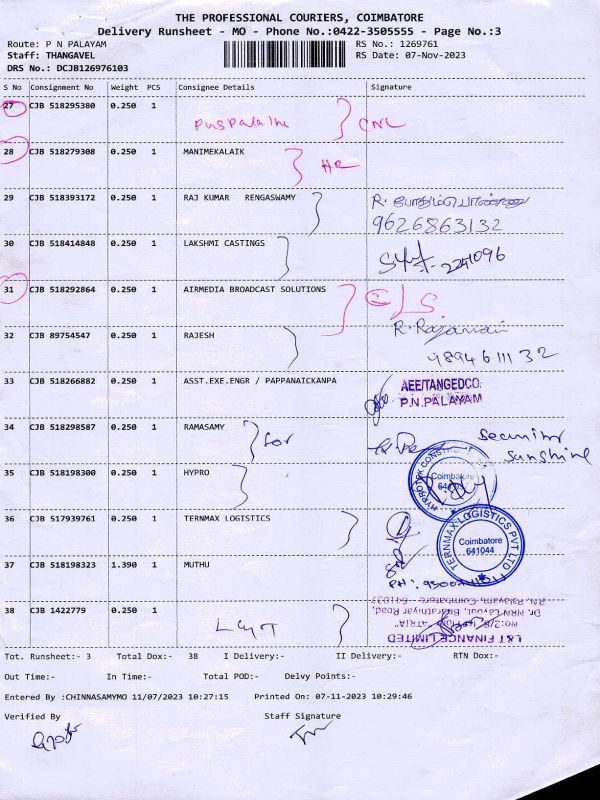 THE PROFESSIONAL COURIERS, COIMBATORE
Delivery Runsheet - MO - Phone No.:0422-3505555 - Page No.:3
Route: P N PALAYAM RS No.: 1269761
Staff: THANGAVEL RS Date: 07-Nov-2023
DRS No.: DCJB126976103
S No Consignment No Weight PCS Consignee Details Signature
27 CJB 518295380 0.250 1
28 CJB 518279308 0.250 1 MANIMEKALAIK
29 CJB 518393172 0.250 1 RAJ KUMAR RENGASWAMY
9626863132
30 CJB 518414848 0.250 1 LAKSHMI CASTINGS
31 CJB 518292864 0.250 1 AIRMEDIA BROADCAST SOLUTIONS
32 CJB 89754547 0.250 1 RAJESH
9894611132
33 CJB 518266882 0.250 1 ASST.EXE.ENGR / PAPPANAICKANPA
AEE/TANGEDCO.
P.N.PALAYAM
34 CJB 518298587 0.250 1 RAMASAMY for
sunshine
35 CJB 518198300 0.250 1 HYPRO
Coimbatore
36 CJB 517939761 0.250 1 TERNMAX LOGISTICS
TERNMAX LOGISTICS PVT LTD
Coimbatore
641044
37 CJB 518198323 1.390 1 MUTHU
PH:
38 CJB 1422779 0.250 1
L&T
L&T FINANCE LIMITED
No:2/8, "ATRIA"
Dr. NRN Layout, Bharathiyar Road,
P.N. Palayam, Coimbatore - 641037
Tot. Runsheet:- 3 Total Dox:- 38 I Delivery:- II Delivery:- RTN Dox:-
Out Time:- In Time:- Total POD:- Delvy Points:-
Entered By :CHINNASAMYMO 11/07/2023 10:27:15 Printed On: 07-11-2023 10:29:46
Verified By Staff Signature